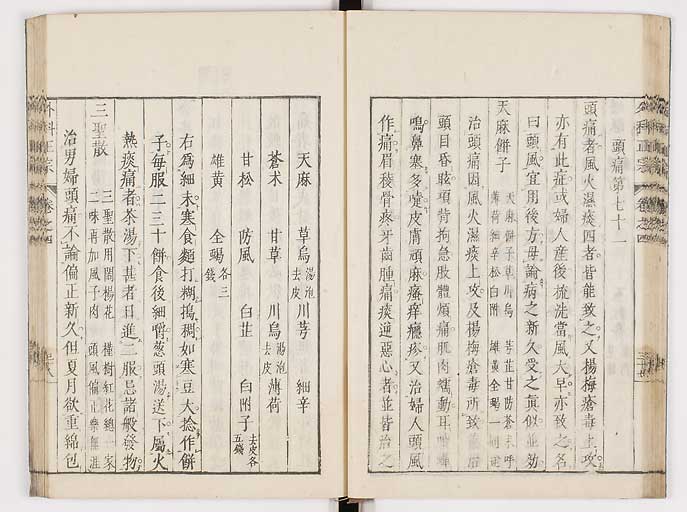 外科正宗 卷之四
頭痛第七十一
頭痛者風火濕痰四者皆能致之又楊梅瘡毒上攻
亦有此症或婦人産後梳洗當風大早亦致之名
曰頭風宜用後方毋論病之新久受之真似並効
天麻餅子
天麻餅子草川烏 芎芷甘防蒼
薄荷細辛松白附 雄黃全蝎一
治頭痛因風火濕痰上攻及楊梅瘡毒所致
頭目昏眩項背拘急肢體煩痛肌肉蠕動耳
鳴鼻塞多嚏皮膚頑麻瘙痒癮疹又治婦人頭風
作痛眉稜骨疼牙齒腫痛痰逆惡心者並皆治之
天麻 草烏湯泡去皮 川芎 細辛
蒼术 甘草 川烏湯泡去皮 薄荷
甘松 防風 白芷 白附子去皮各五錢
雄黃 全蝎各三錢
右爲細末寒食麵打糊搗稠如寒豆大捻作餅
子每服二三十餅食後細嚼葱頭湯送下屬火
熱痰痛者茶湯下甚者日進二服忌諸般發物
三聖散
三聖散用閙楊花 槿樹紅花總一家
二味再加風子肉 頭風偏正樂無涯
治男婦頭痛不論偏正新久但夏月欲重綿包
外科正宗 卷之四